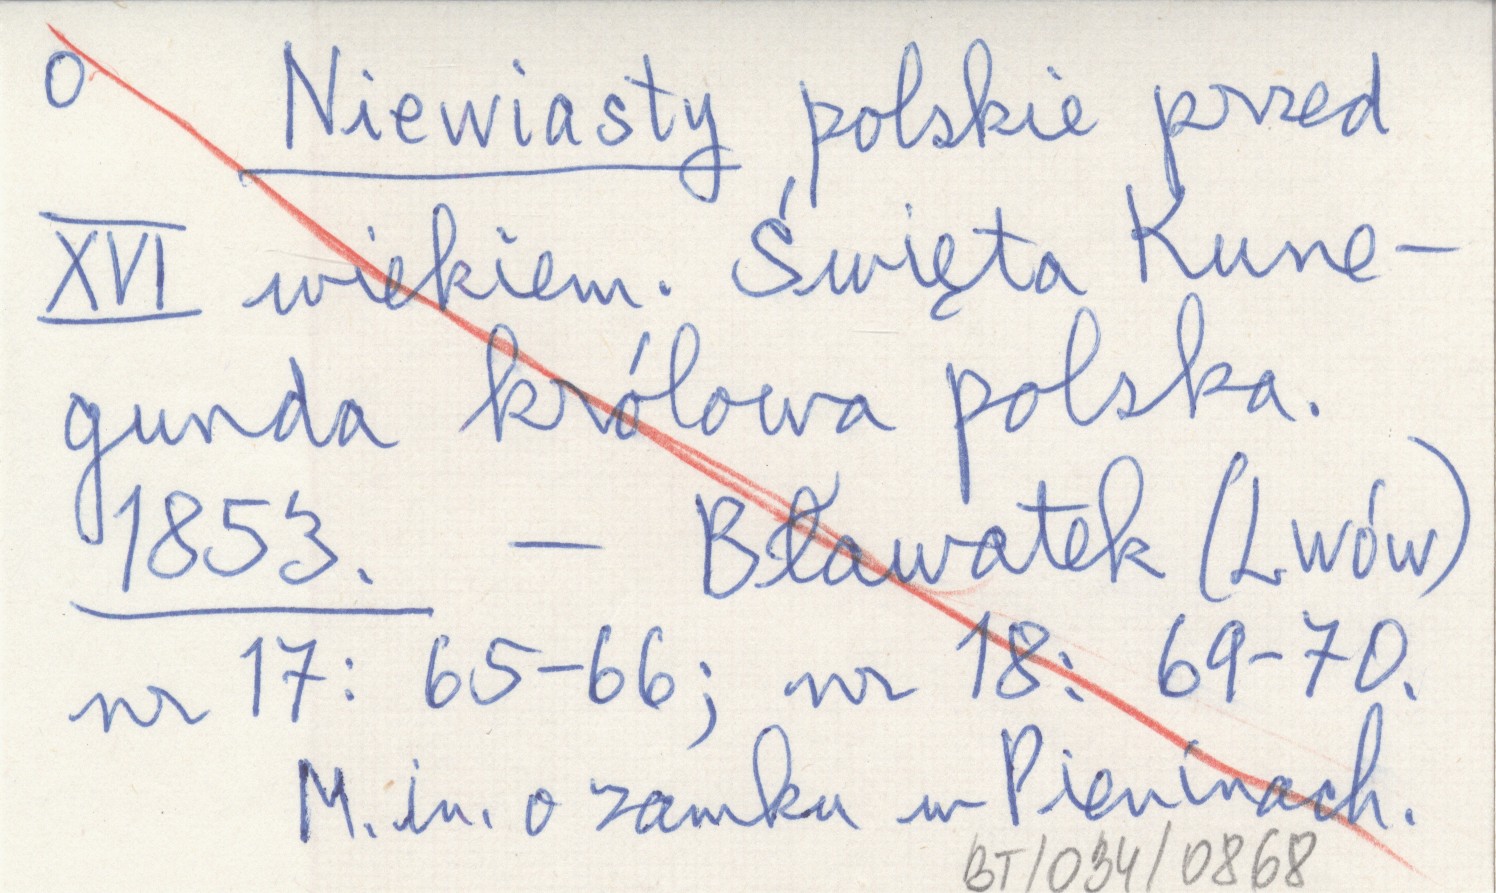 O Niewiasty polskie przed
XVI wiekiem. Święta Kune-
gunda królowa polska.
1853. — Bławatek (Lwów)
nr 17: 65-66; nr 18: 69-70.
M. in. o zamku w Pieninach.
BT/034/0868